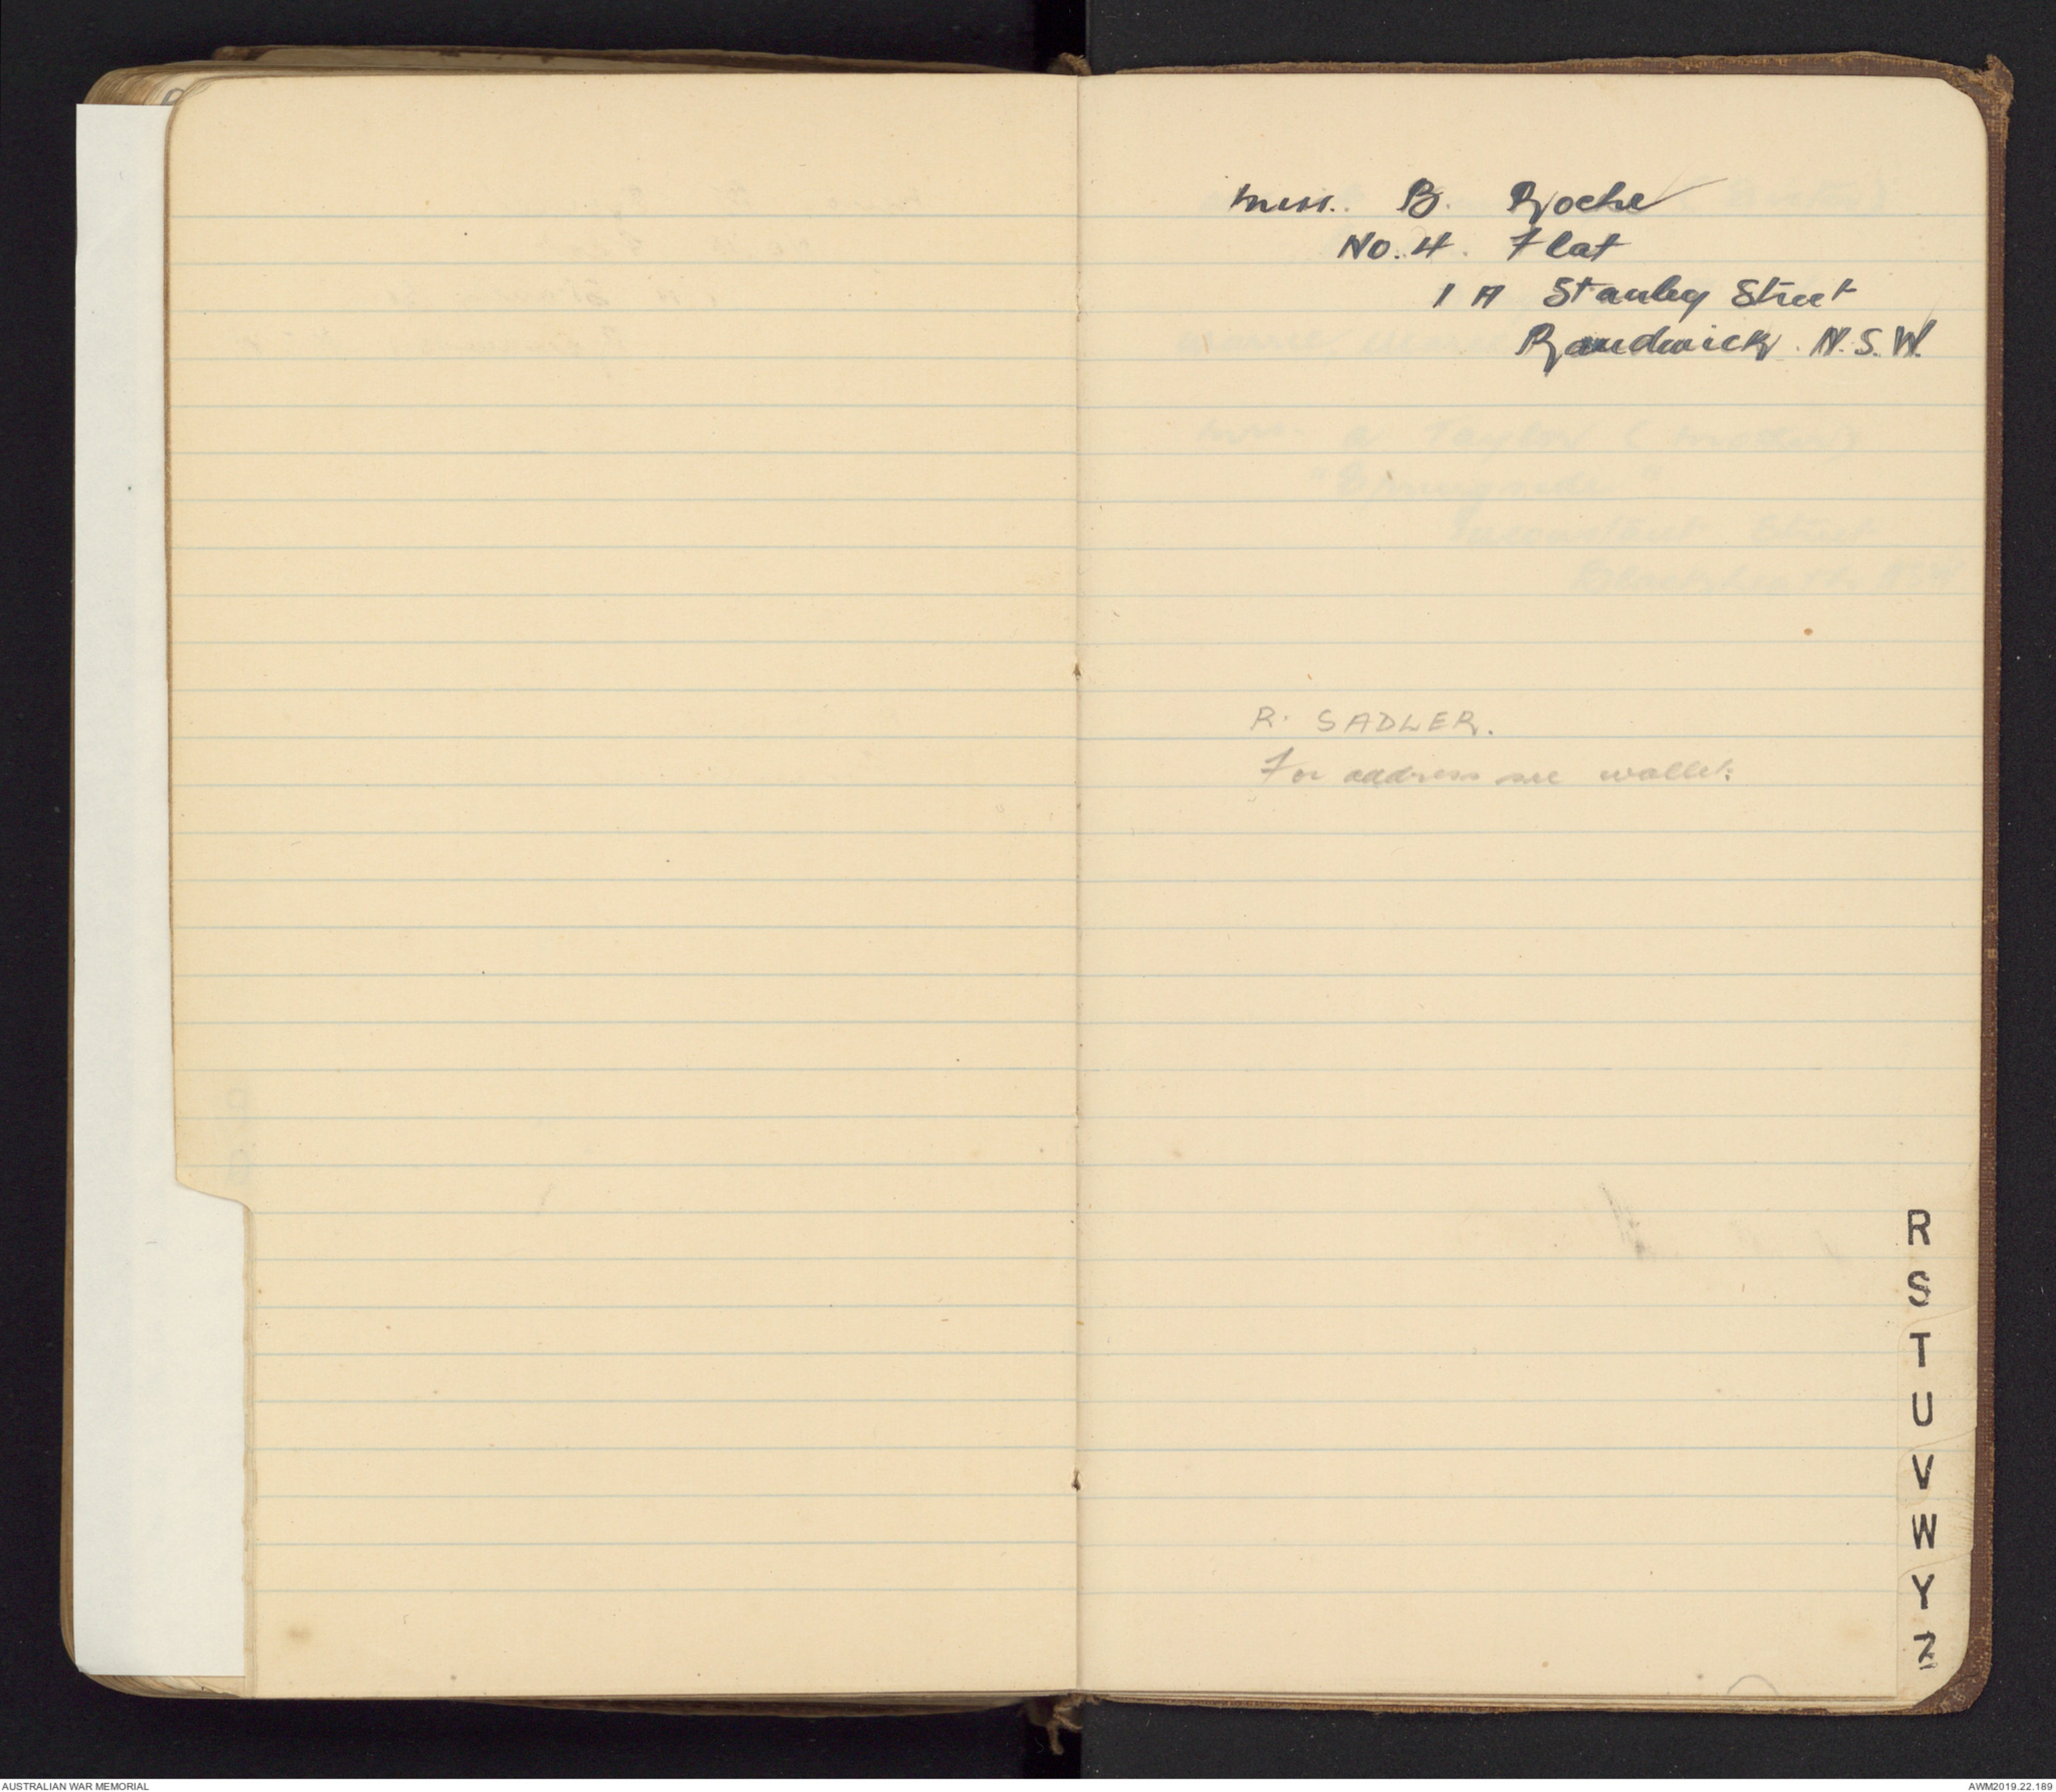 Miss. B. Roche
No. 4. Flat
1 A Stanley Street
Randwick. N.S.W.
Mrs. A Taylor (mother)
Street
R. SADLER.
For address see wallet.
R
S
T
U
V
W
Y
Z
AUSTRALIAN WAR MEMORIAL
AWM2019.22.189